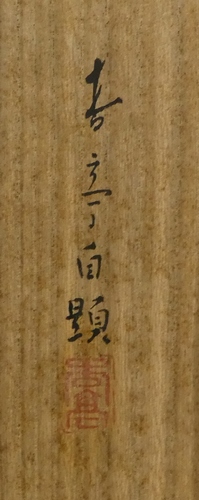 春亭自題